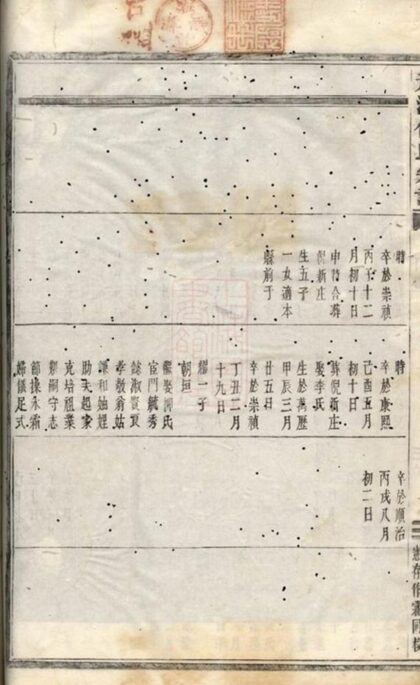 時
卒於崇禎
丙子十二
月初十日
申時合葬
倪新庄
生五子
一女適本
縣前于
時
卒於康熙
己酉五月
初十日
葬倪新庄
娶李氏
生於萬歷
甲辰三月
廿五日
卒於崇禎
丁丑二月
十九日
耀一子
朝垣
繼娶柳氏
宦門毓秀
淑賢
孝敬翁姑
謙和妯娌
助夫起家
克培祖業
嗣守志
節操永霜
婦儀足式
卒於順治
丙戌八月
初二日